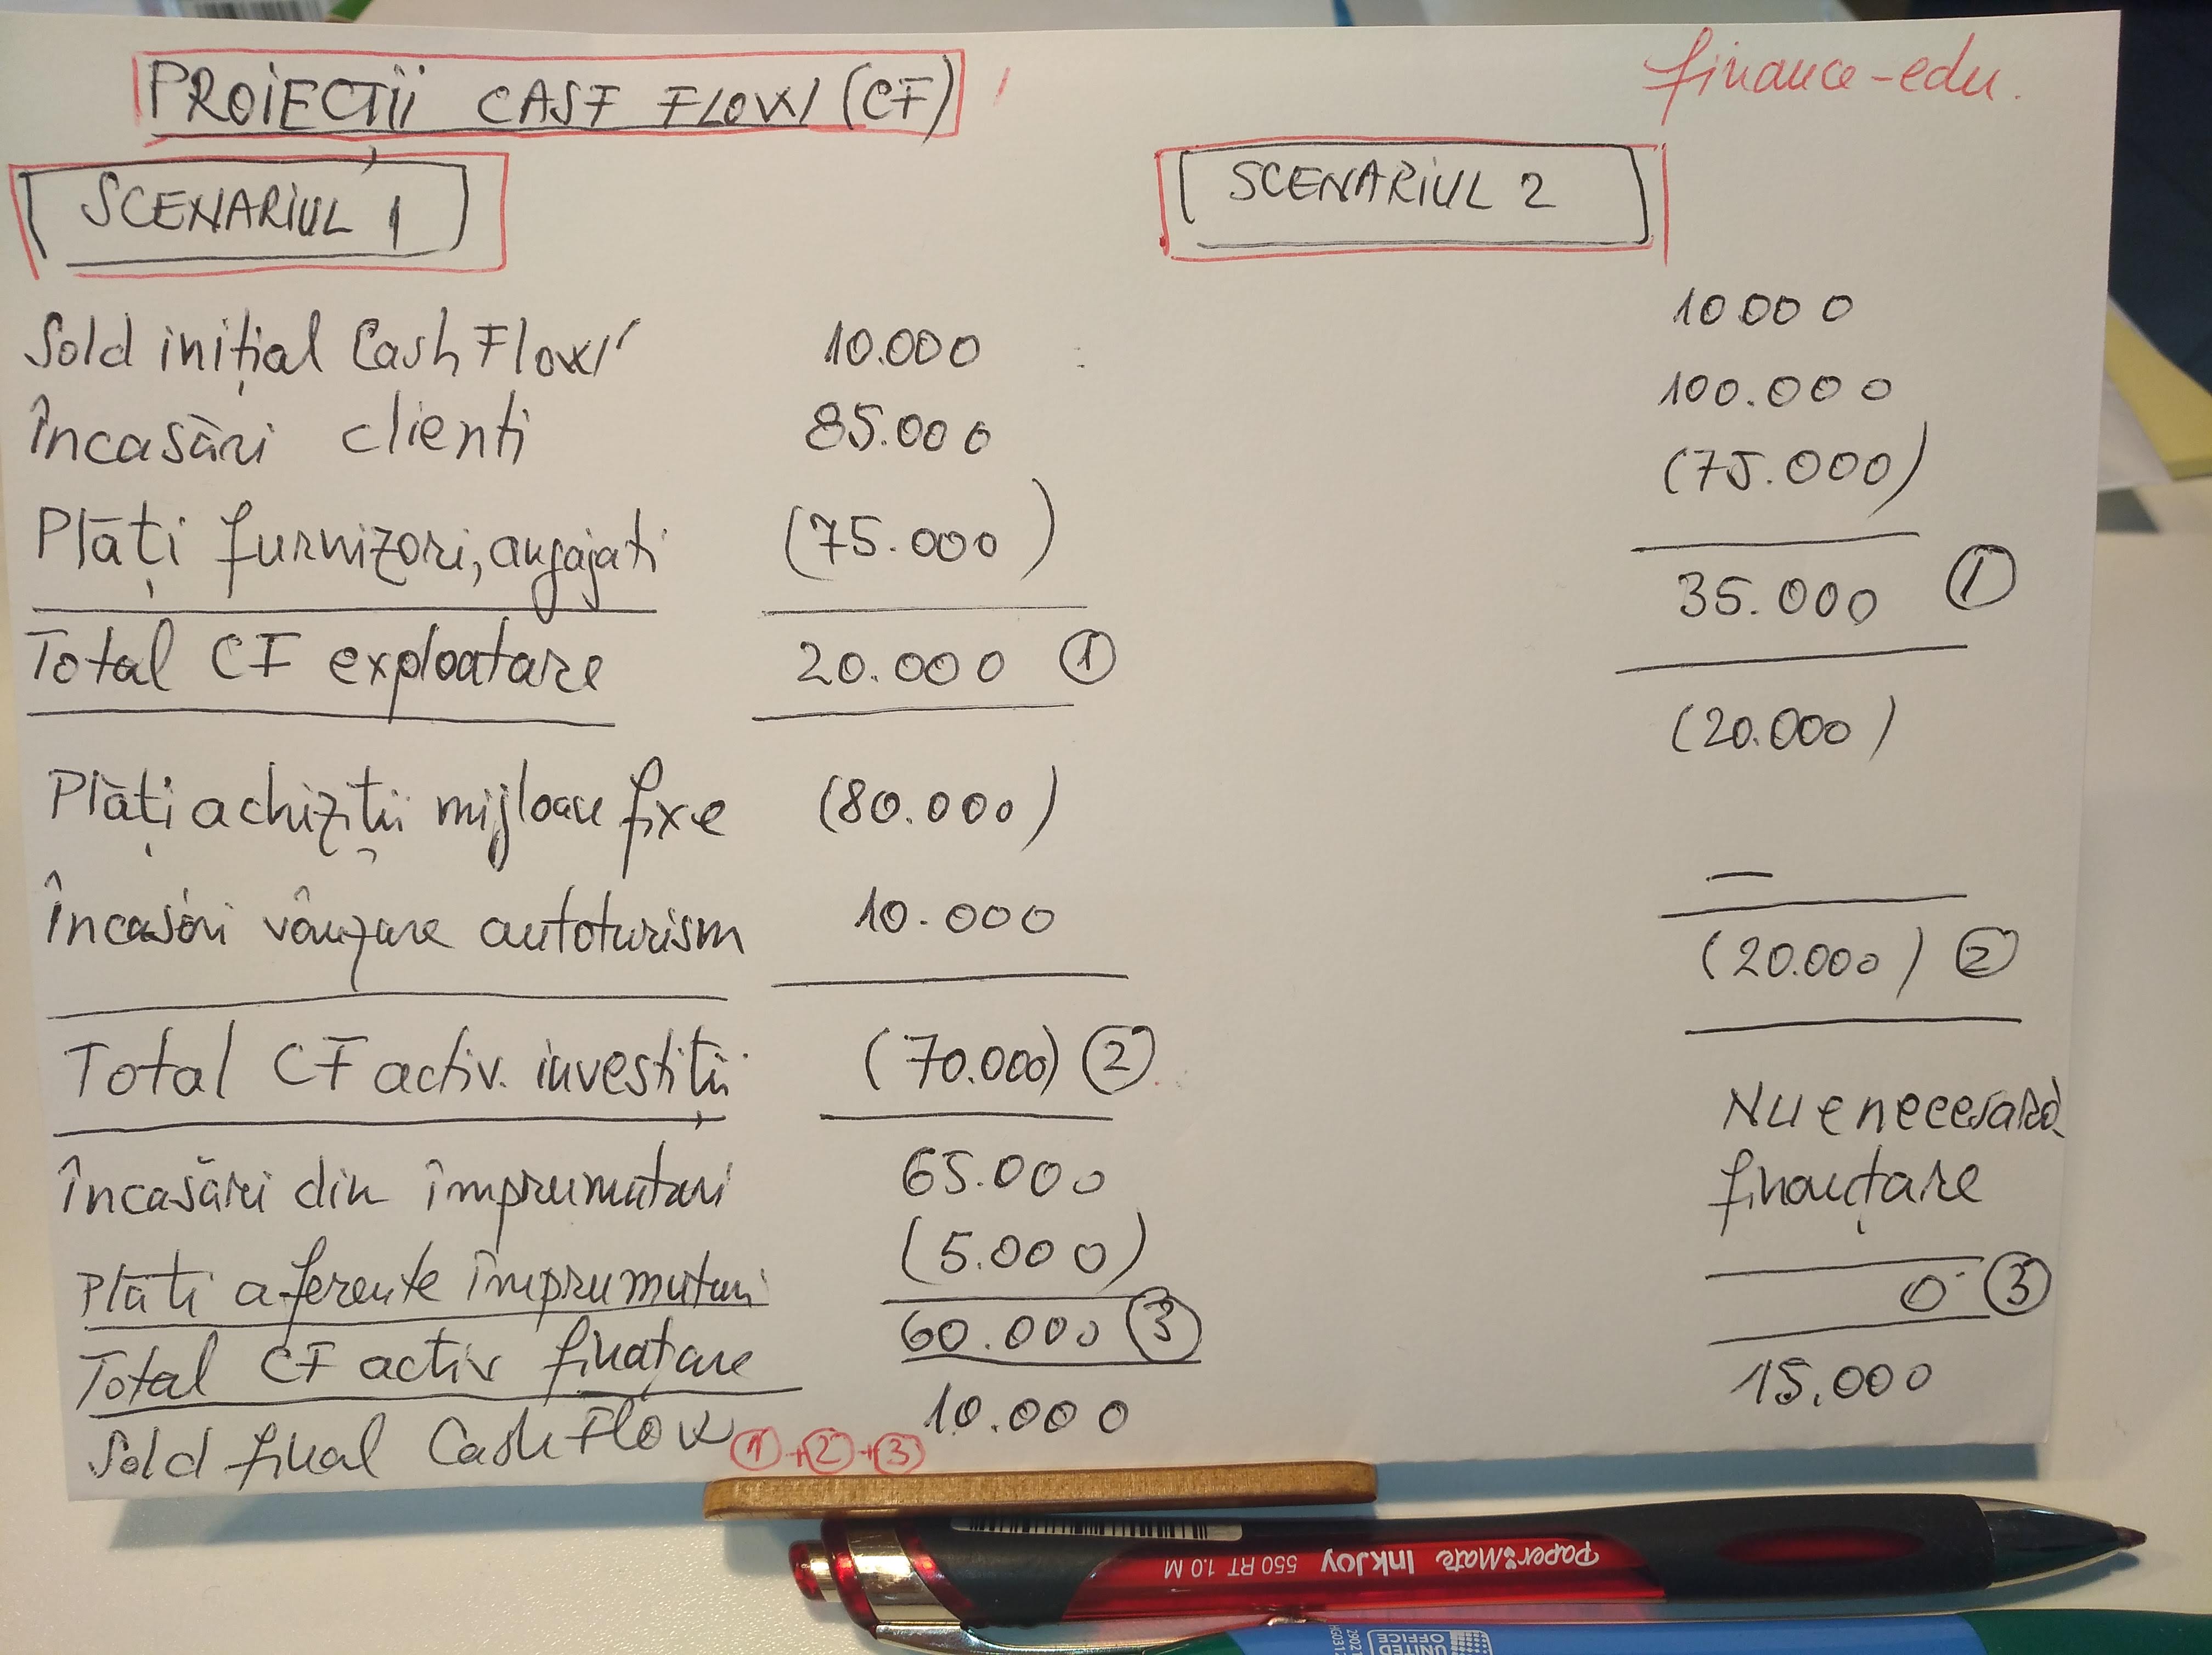 PROIECȚII CASF FLOW (CF)
finance-edu.
SCENARIUL 1
SCENARIUL 2
Sold inițial Cash Flow 10.000 10000
Încasări clienti 85.000 100.000
Plăți furnizori, angajati (75.000) (75.000)
Total CF exploatare 20.000 1 35.000 1
Plăți achiziții mijloace fixe (80.000) (20.000)
Încasări vânzare autoturism 10.000 —
Total CF activ. investiții (70.000) 2 (20.000) 2
Încasări din împrumuturi 65.000 Nu e necesară
finanțare
Plăti aferente împrumuturi (5.000)
Total CF activ finațare 60.000 3 0 3
Sold final Cash Flow 1+2+3 10.000 15.000
Paper Mate InkJoy 550 RT 1.0 M
UNITED
OFFICE